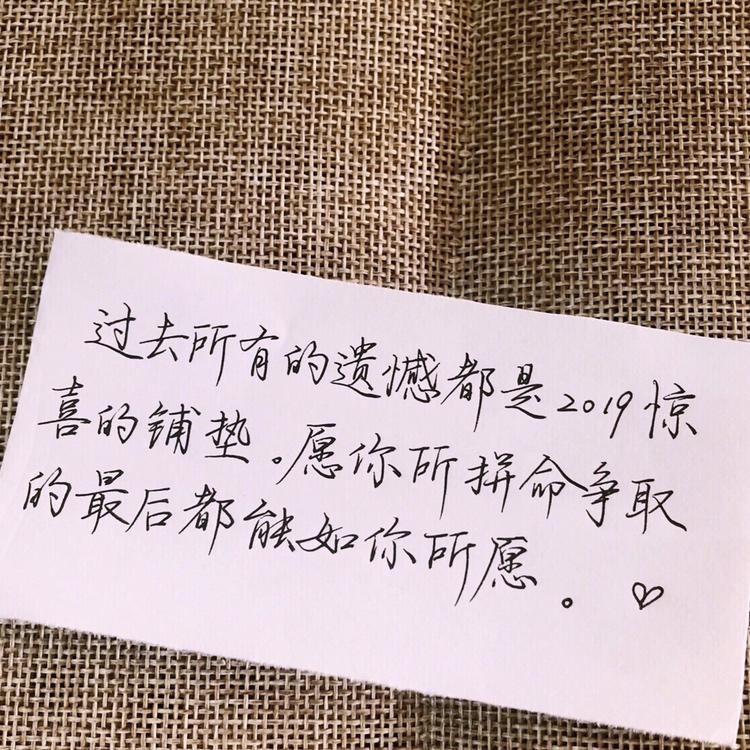 过去所有的遗憾都是2019惊
喜的铺垫。愿你所拼命争取
的最后都能如你所愿。♡